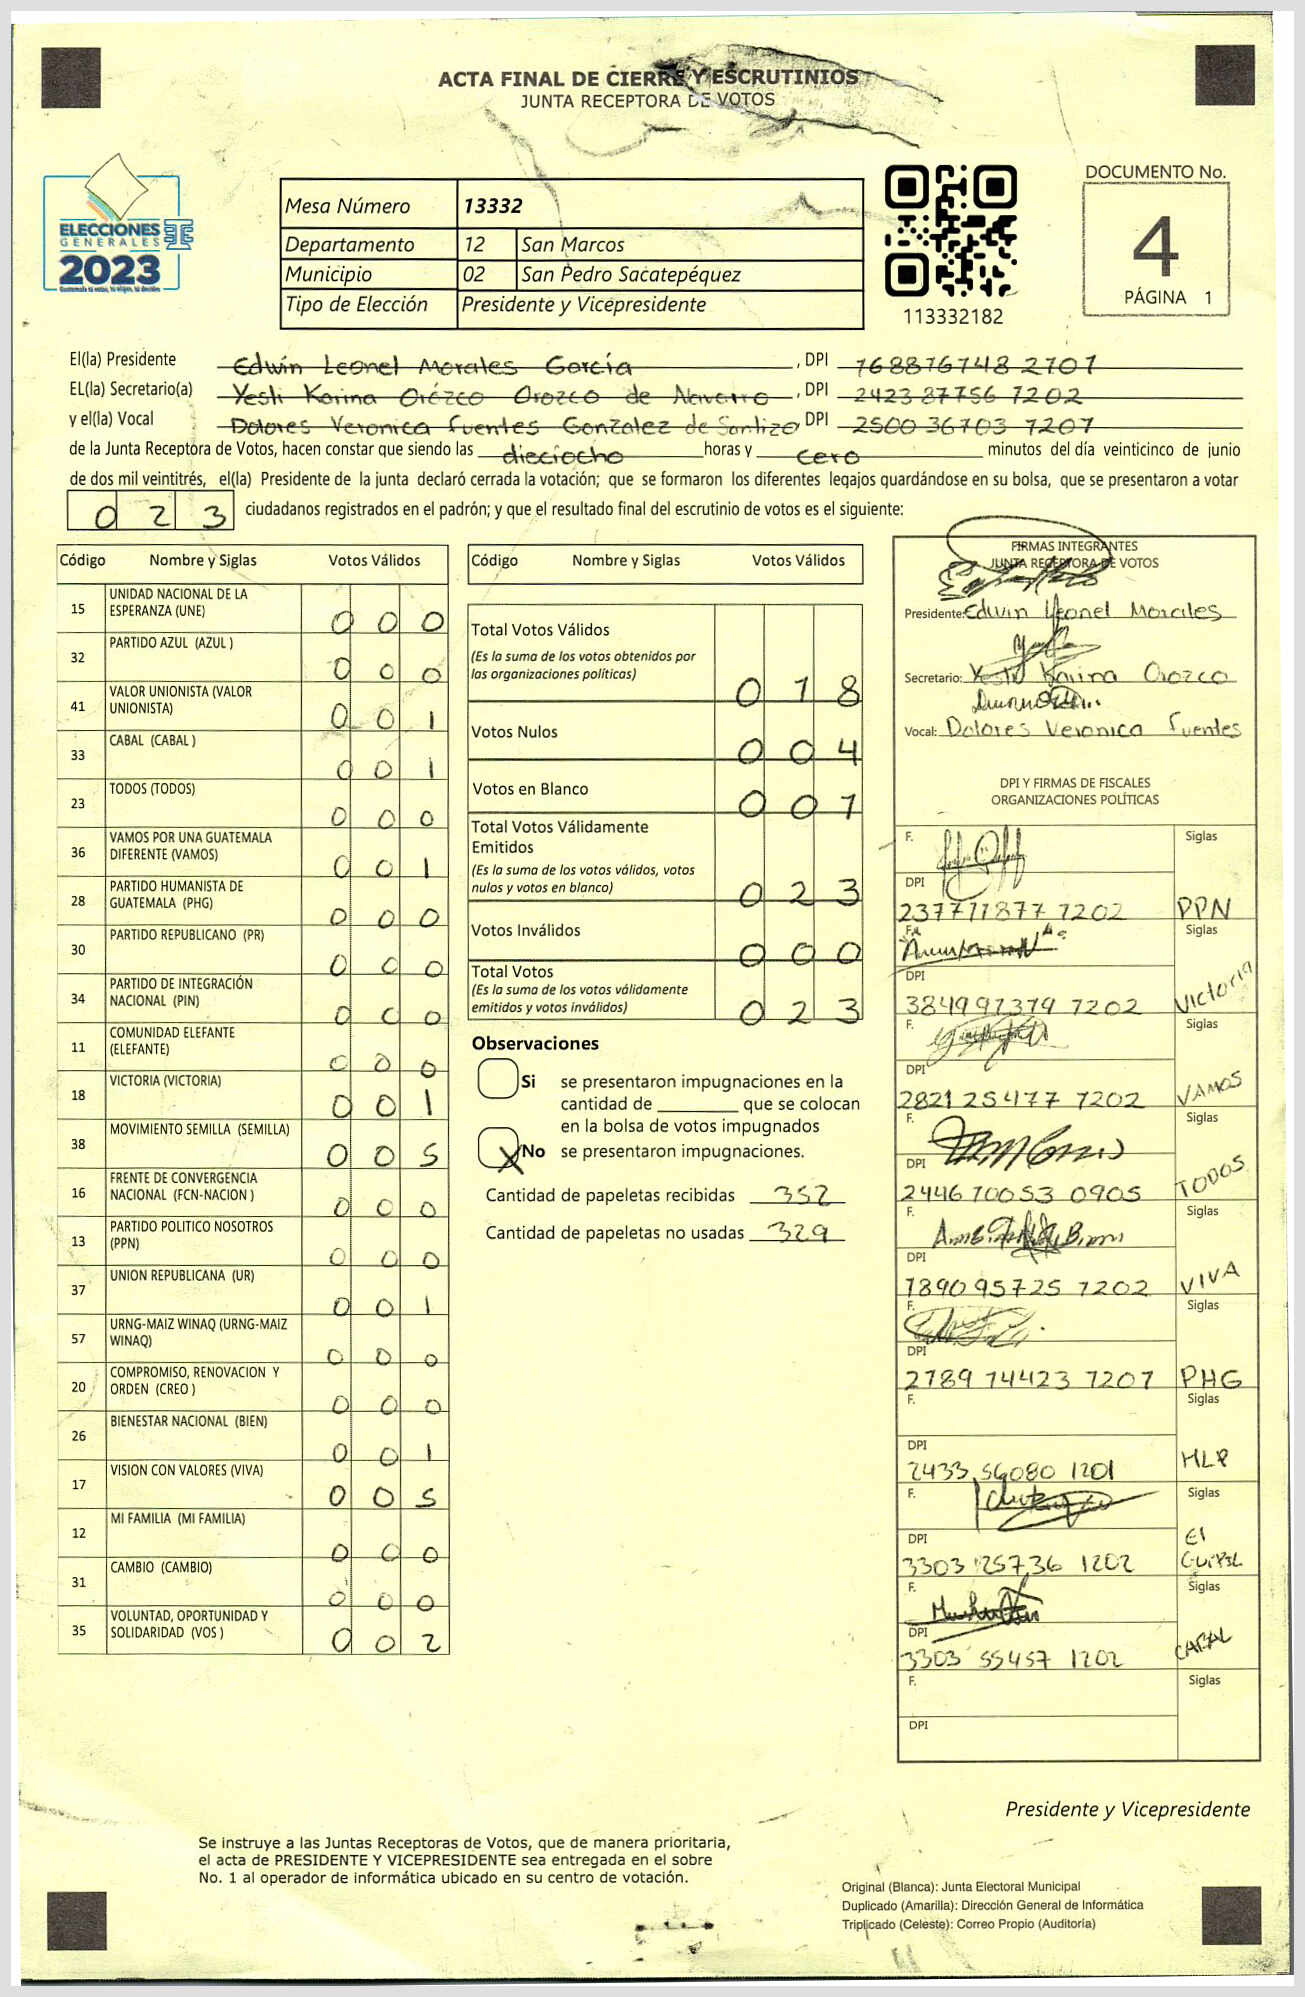 ACTA FINAL DE CIERRE Y ESCRUTINIOS
JUNTA RECEPTORA DE VOTOS
ELECCIONES
GENERALES
2023
Mesa Número 13332
Departamento 12 San Marcos
Municipio 02 San Pedro Sacatepéquez
Tipo de Elección Presidente y Vicepresidente
113332182
DOCUMENTO No.
4
PÁGINA 1
El(la) Presidente Edwin Leonel Morales García, DPI 768876748 2707
EL(la) Secretario(a) Yesli Karina Orózco Orozco de Navarro, DPI 2423 87756 7202
y el(la) Vocal Dolores Veronica Fuentes Gonzalez de Santizo, DPI 2500 36703 7207
de la Junta Receptora de Votos, hacen constar que siendo las dieciocho horas y cero minutos del día veinticinco de junio
de dos mil veintitrés, el(la) Presidente de la junta declaró cerrada la votación; que se formaron los diferentes legajos quardándose en su bolsa, que se presentaron a votar
0 2 3 ciudadanos registrados en el padrón; y que el resultado final del escrutinio de votos es el siguiente:
Código Nombre y Siglas Votos Válidos
15 UNIDAD NACIONAL DE LA
ESPERANZA (UNE) 0 0 0
32 PARTIDO AZUL (AZUL ) 0 0 0
41 VALOR UNIONISTA (VALOR
UNIONISTA) 0 0 1
33 CABAL (CABAL ) 0 0 1
23 TODOS (TODOS) 0 0 0
36 VAMOS POR UNA GUATEMALA
DIFERENTE (VAMOS) 0 0 1
28 PARTIDO HUMANISTA DE
GUATEMALA (PHG) 0 0 0
30 PARTIDO REPUBLICANO (PR) 0 0 0
34 PARTIDO DE INTEGRACIÓN
NACIONAL (PIN) 0 0 0
11 COMUNIDAD ELEFANTE
(ELEFANTE) 0 0 0
18 VICTORIA (VICTORIA) 0 0 1
38 MOVIMIENTO SEMILLA (SEMILLA) 0 0 5
16 FRENTE DE CONVERGENCIA
NACIONAL (FCN-NACION ) 0 0 0
13 PARTIDO POLITICO NOSOTROS
(PPN) 0 0 0
37 UNION REPUBLICANA (UR) 0 0 1
57 URNG-MAIZ WINAQ (URNG-MAIZ
WINAQ) 0 0 0
20 COMPROMISO, RENOVACION Y
ORDEN (CREO ) 0 0 0
26 BIENESTAR NACIONAL (BIEN) 0 0 1
17 VISION CON VALORES (VIVA) 0 0 5
12 MI FAMILIA (MI FAMILIA) 0 0 0
31 CAMBIO (CAMBIO) 0 0 0
35 VOLUNTAD, OPORTUNIDAD Y
SOLIDARIDAD (VOS ) 0 0 2
Código Nombre y Siglas Votos Válidos
Total Votos Válidos
(Es la suma de los votos obtenidos por
las organizaciones políticas) 0 1 8
Votos Nulos 0 0 4
Votos en Blanco 0 0 1
Total Votos Válidamente
Emitidos
(Es la suma de los votos válidos, votos
nulos y votos en blanco) 0 2 3
Votos Inválidos 0 0 0
Total Votos
(Es la suma de los votos válidamente
emitidos y votos inválidos) 0 2 3
Observaciones
Si se presentaron impugnaciones en la
cantidad de ________ que se colocan
en la bolsa de votos impugnados
X No se presentaron impugnaciones.
Cantidad de papeletas recibidas 352
Cantidad de papeletas no usadas 329
FIRMAS INTEGRANTES
JUNTA RECEPTORA DE VOTOS
Presidente: Edwin Leonel Morales
Secretario: Yesli Karina Orozco
Vocal: Dolores Veronica Fuentes
DPI Y FIRMAS DE FISCALES
ORGANIZACIONES POLÍTICAS
F. Siglas
DPI
237711877 7202 PPN
F. Siglas
DPI
384997379 7202 Victoria
F. Siglas
DPI
2821 25477 7202 VAMOS
F. Siglas
DPI
2446 70053 0905 TODOS
F. Siglas
DPI
7890 95725 7202 VIVA
F. Siglas
DPI
2789 74423 7207 PHG
F. Siglas
DPI
2433 56080 1201 MLP
F. Siglas
DPI
3303 25736 1202 El
F. Siglas
DPI
3303 55457 1202 CABAL
F. Siglas
DPI
Presidente y Vicepresidente
Se instruye a las Juntas Receptoras de Votos, que de manera prioritaria,
el acta de PRESIDENTE Y VICEPRESIDENTE sea entregada en el sobre
No. 1 al operador de informática ubicado en su centro de votación.
Original (Blanca): Junta Electoral Municipal
Duplicado (Amarilla): Dirección General de Informática
Triplicado (Celeste): Correo Propio (Auditoría)